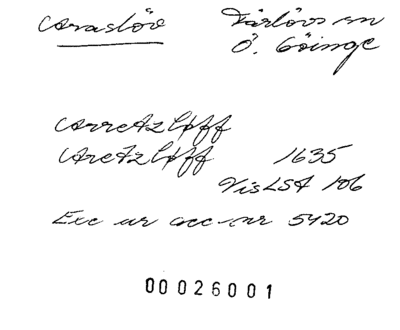 Araslöv Färlövs sn
Ö. Göinge
Arretzlöff
Aretzlöff 1635
VisLSA 106
Exc ur acc-nr 5420
00026001